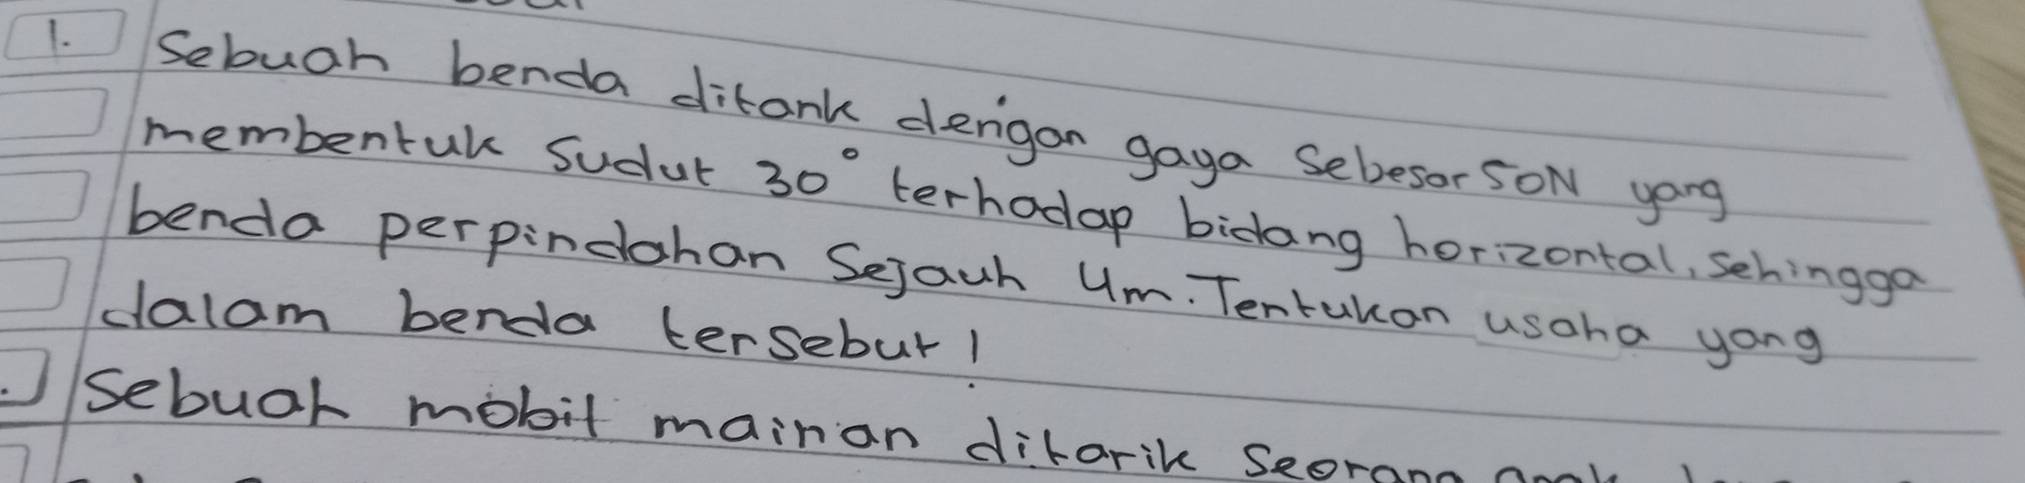 1. Sebuah benda ditarik dengan gaya sebesar 50N yang
membentuk sudut 30° terhadap bidang horizontal, sehingga
benda perpindahan sejauh 4m. Tentukan usaha yang
dalam benda tersebut!
Sebuah mobil mainan ditarik seorang anak